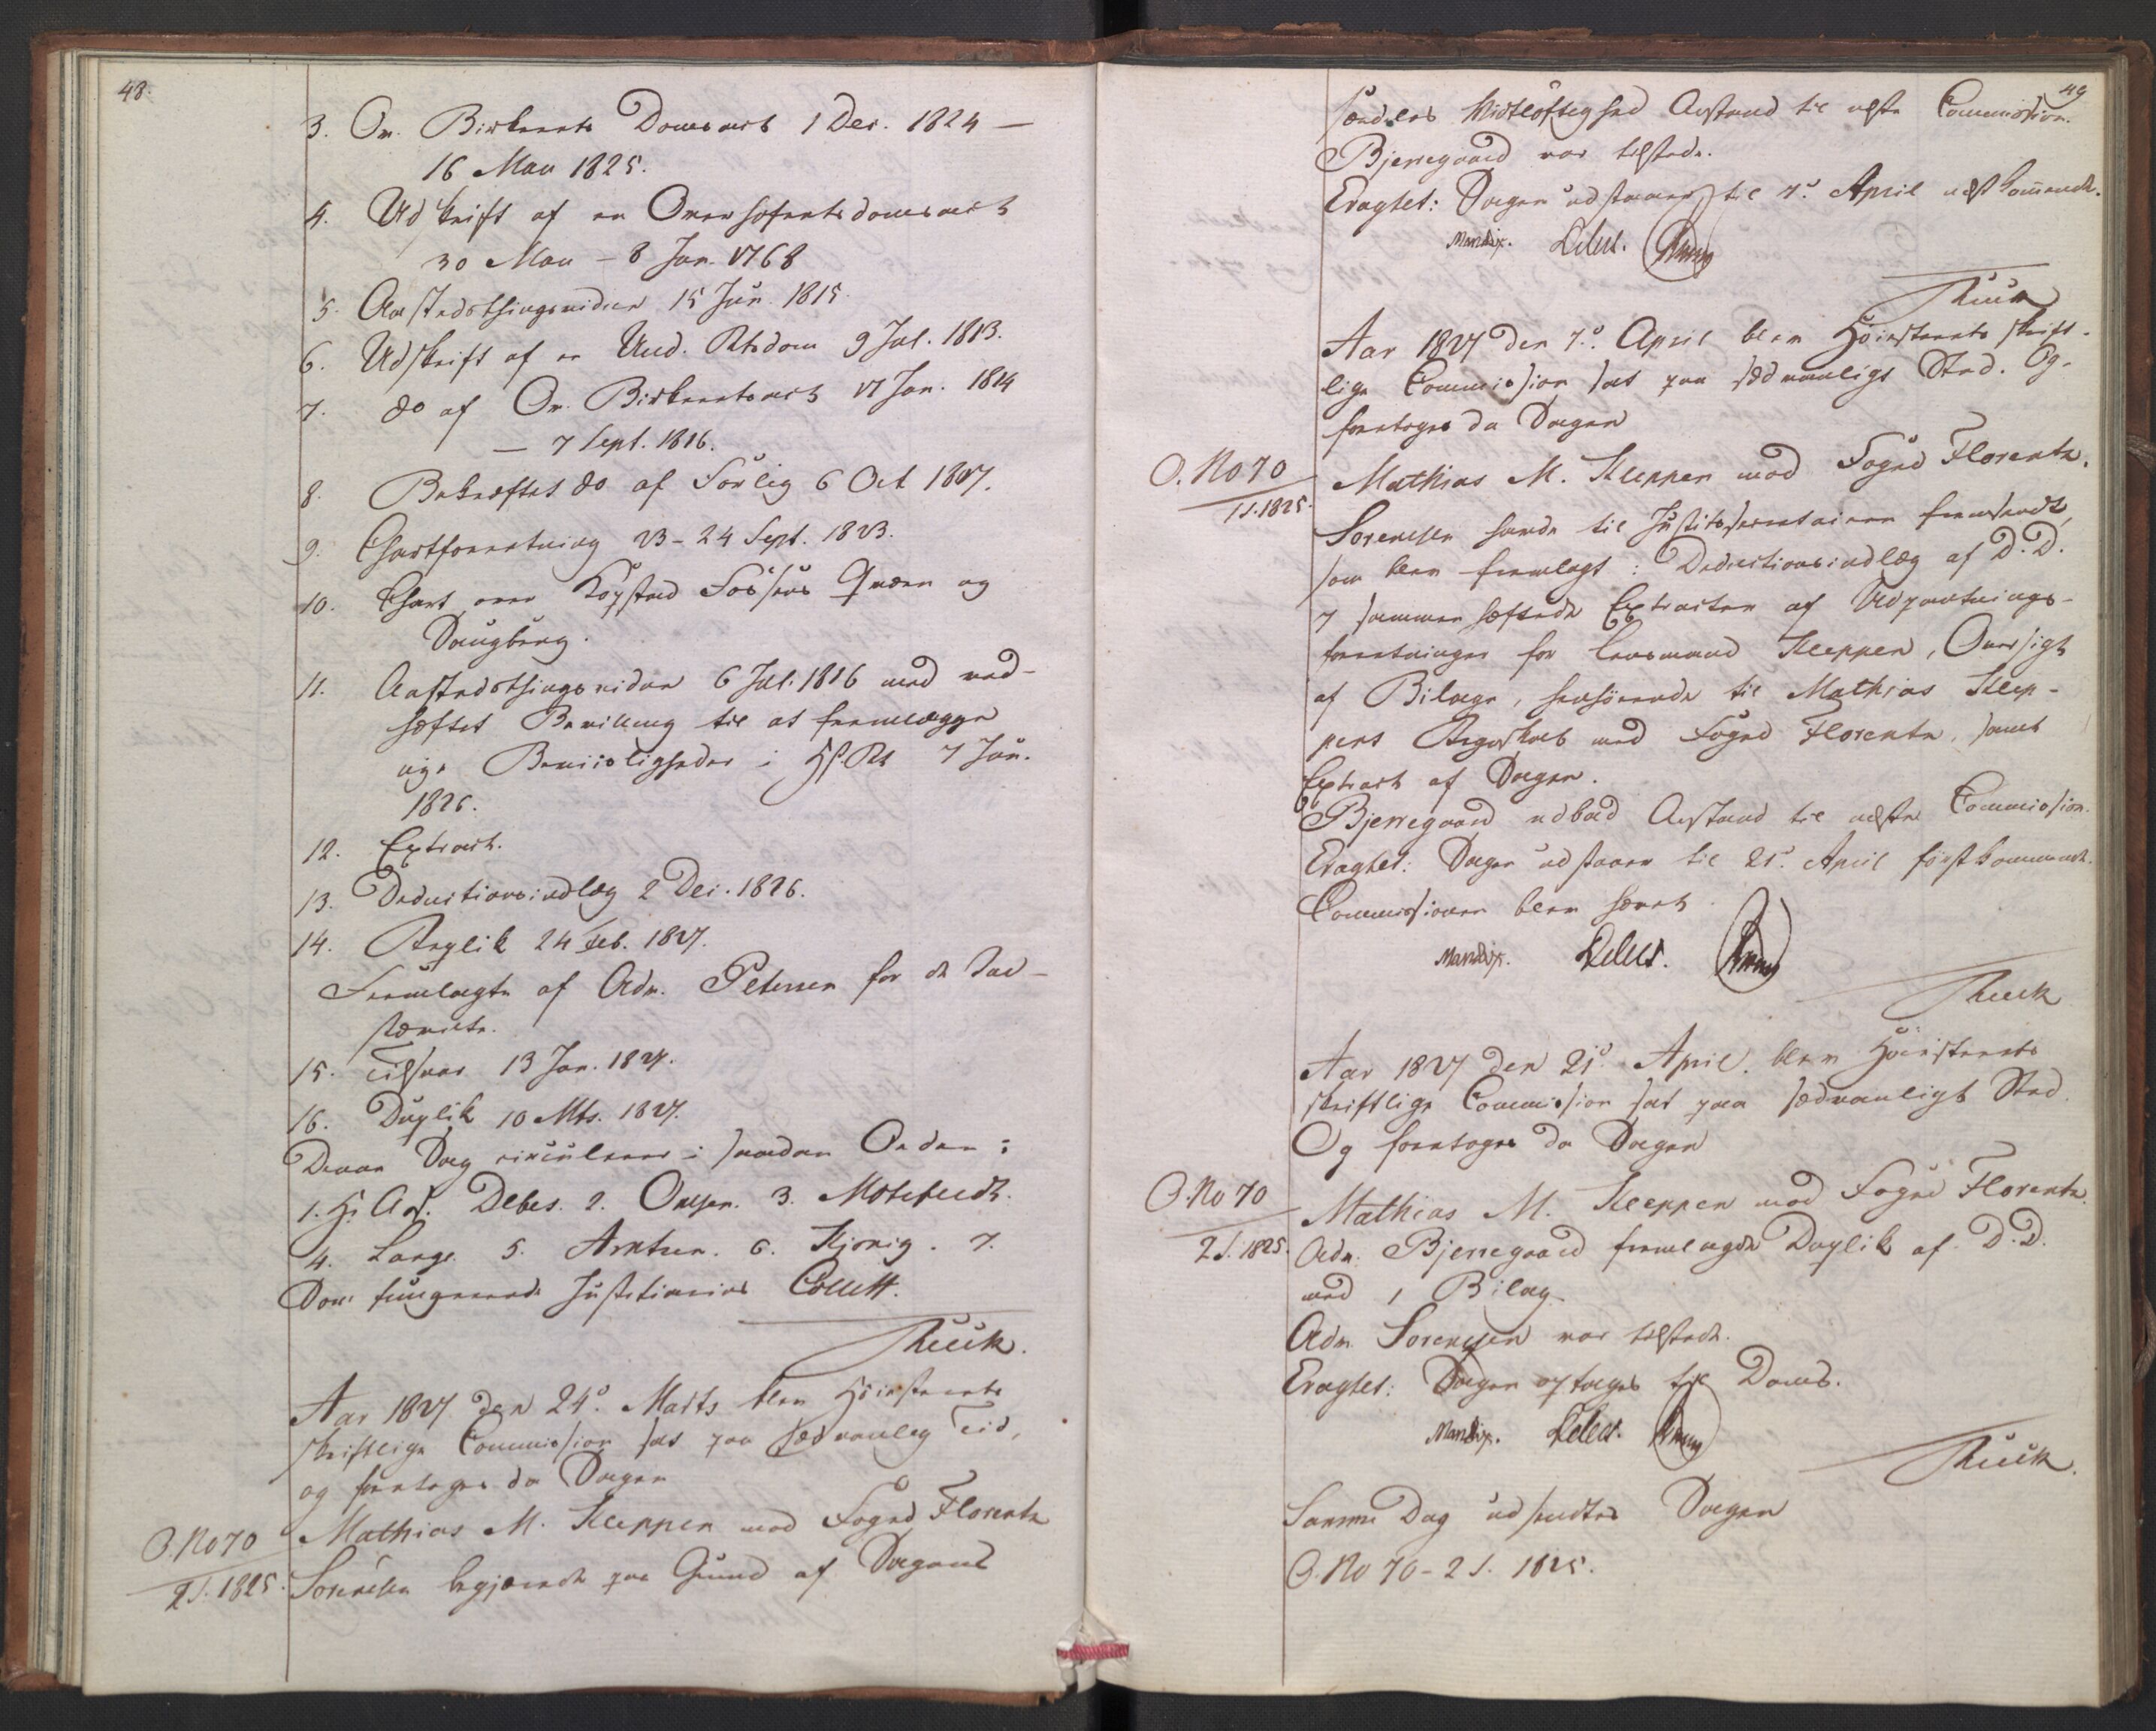 48.
3. Ov. Birkerets Domsact 1 Dec. 1824 —
16 Mai 1825.
4. Udskrift af en Overhofretsdomsact
30 Mai – 8 Jan. 1768
5. Aastedsthingsvidne 15 Jun. 1815.
6. Udskrift af en Und. Rtsdom 9 Jul. 1813.
7. do af Ov. Birkeretsact 17 Jan. 1814
— 7 Sept. 1816.
8. Bekræftet do af Forlig 6 Oct 1807.
9. Chartforretning 23 – 24 Sept. 1823.
10. Chart over Kopstad Fossens Qværn og
Brugbrug.
11. Aastedsthingsvidne 6 Jul. 1816 med ved-
hæftet Bevilling til at fremlægge
nye Beviisligheder i HstRet 7 Jan.
1826.
12. Extract.
13. Deductionsindlæg 2 Dec. 1826.
14. Replik 24 Feb. 1827.
Fremlagte af Adv. Petersen for de Ind-
stævnte.
15. Tilsvar 13 Jan. 1827.
16. Duplik 10 Mts. 1827.
Denne Sag circulerer i saadan Orden:
1. Hr. Ass. Debes. 2. Omsen. 3. Motzfeldt.
4. Lange. 5. Arntzen. 6. Hjorig. 7.
Den fungerende Justitiarius Collett.
Ruck.
Aar 1827 den 24de Marts blev Höiesterets
skriftlige Commission sat paa sædvanlig Tid,
og foretoges da Sagen
O. No 70
2 S. 1825.
Mathias M. Kleppen mod Foged Florentz
Sorensen begjærede paa Grund af Sagens
49
særdeles Vidtløftighed Anstand til næste Commission.
Bjerregaard var tilstede.
Eragtet: Sagen udstaaer til 7de April næstkommende.
Mandix. Debes.
Ruck
Aar 1827 den 7de April blev Höiesterets skrift-
lige Commission sat paa sædvanligt Sted. Og
foretoges da Sagen
O. No 70
1 S. 1825.
Mathias M. Kleppen mod Foged Florentz.
Sorensen havde til Justitssecretairen fremsendt,
som blev fremlagt: Deductionsindlæg af D. D.
7 sammenhæftede Extracter af Udpantnings-
forretninger for Lensmand Kleppen, Oversigt
af Bilage, henhörende til Mathias Klep-
pens Regnskab med Foged Florentz, samt
Extract af Sagen.
Bjerregaard udbad Anstand til næste Commission.
Eragtet: Sagen udstaaer til 21de April förstkommende.
Commissionen blev hævet.
Mandix. Debes.
Ruck
Aar 1827 den 21de April blev Höiesterets
skriftlige Commission sat paa sædvanligt Sted.
Og foretoges da Sagen
O. No 70
2 S. 1825.
Mathias M. Kleppen mod Foged Florentz.
Adv. Bjerregaard fremlagde Duplik af D. D.
med 1 Bilag.
Adv. Sorensen var tilstede.
Eragtet: Sagen optages til Doms.
Mandix. Debes.
Ruck.
Samme Dag udsendtes Sagen
O. No 70 – 2 S. 1825.